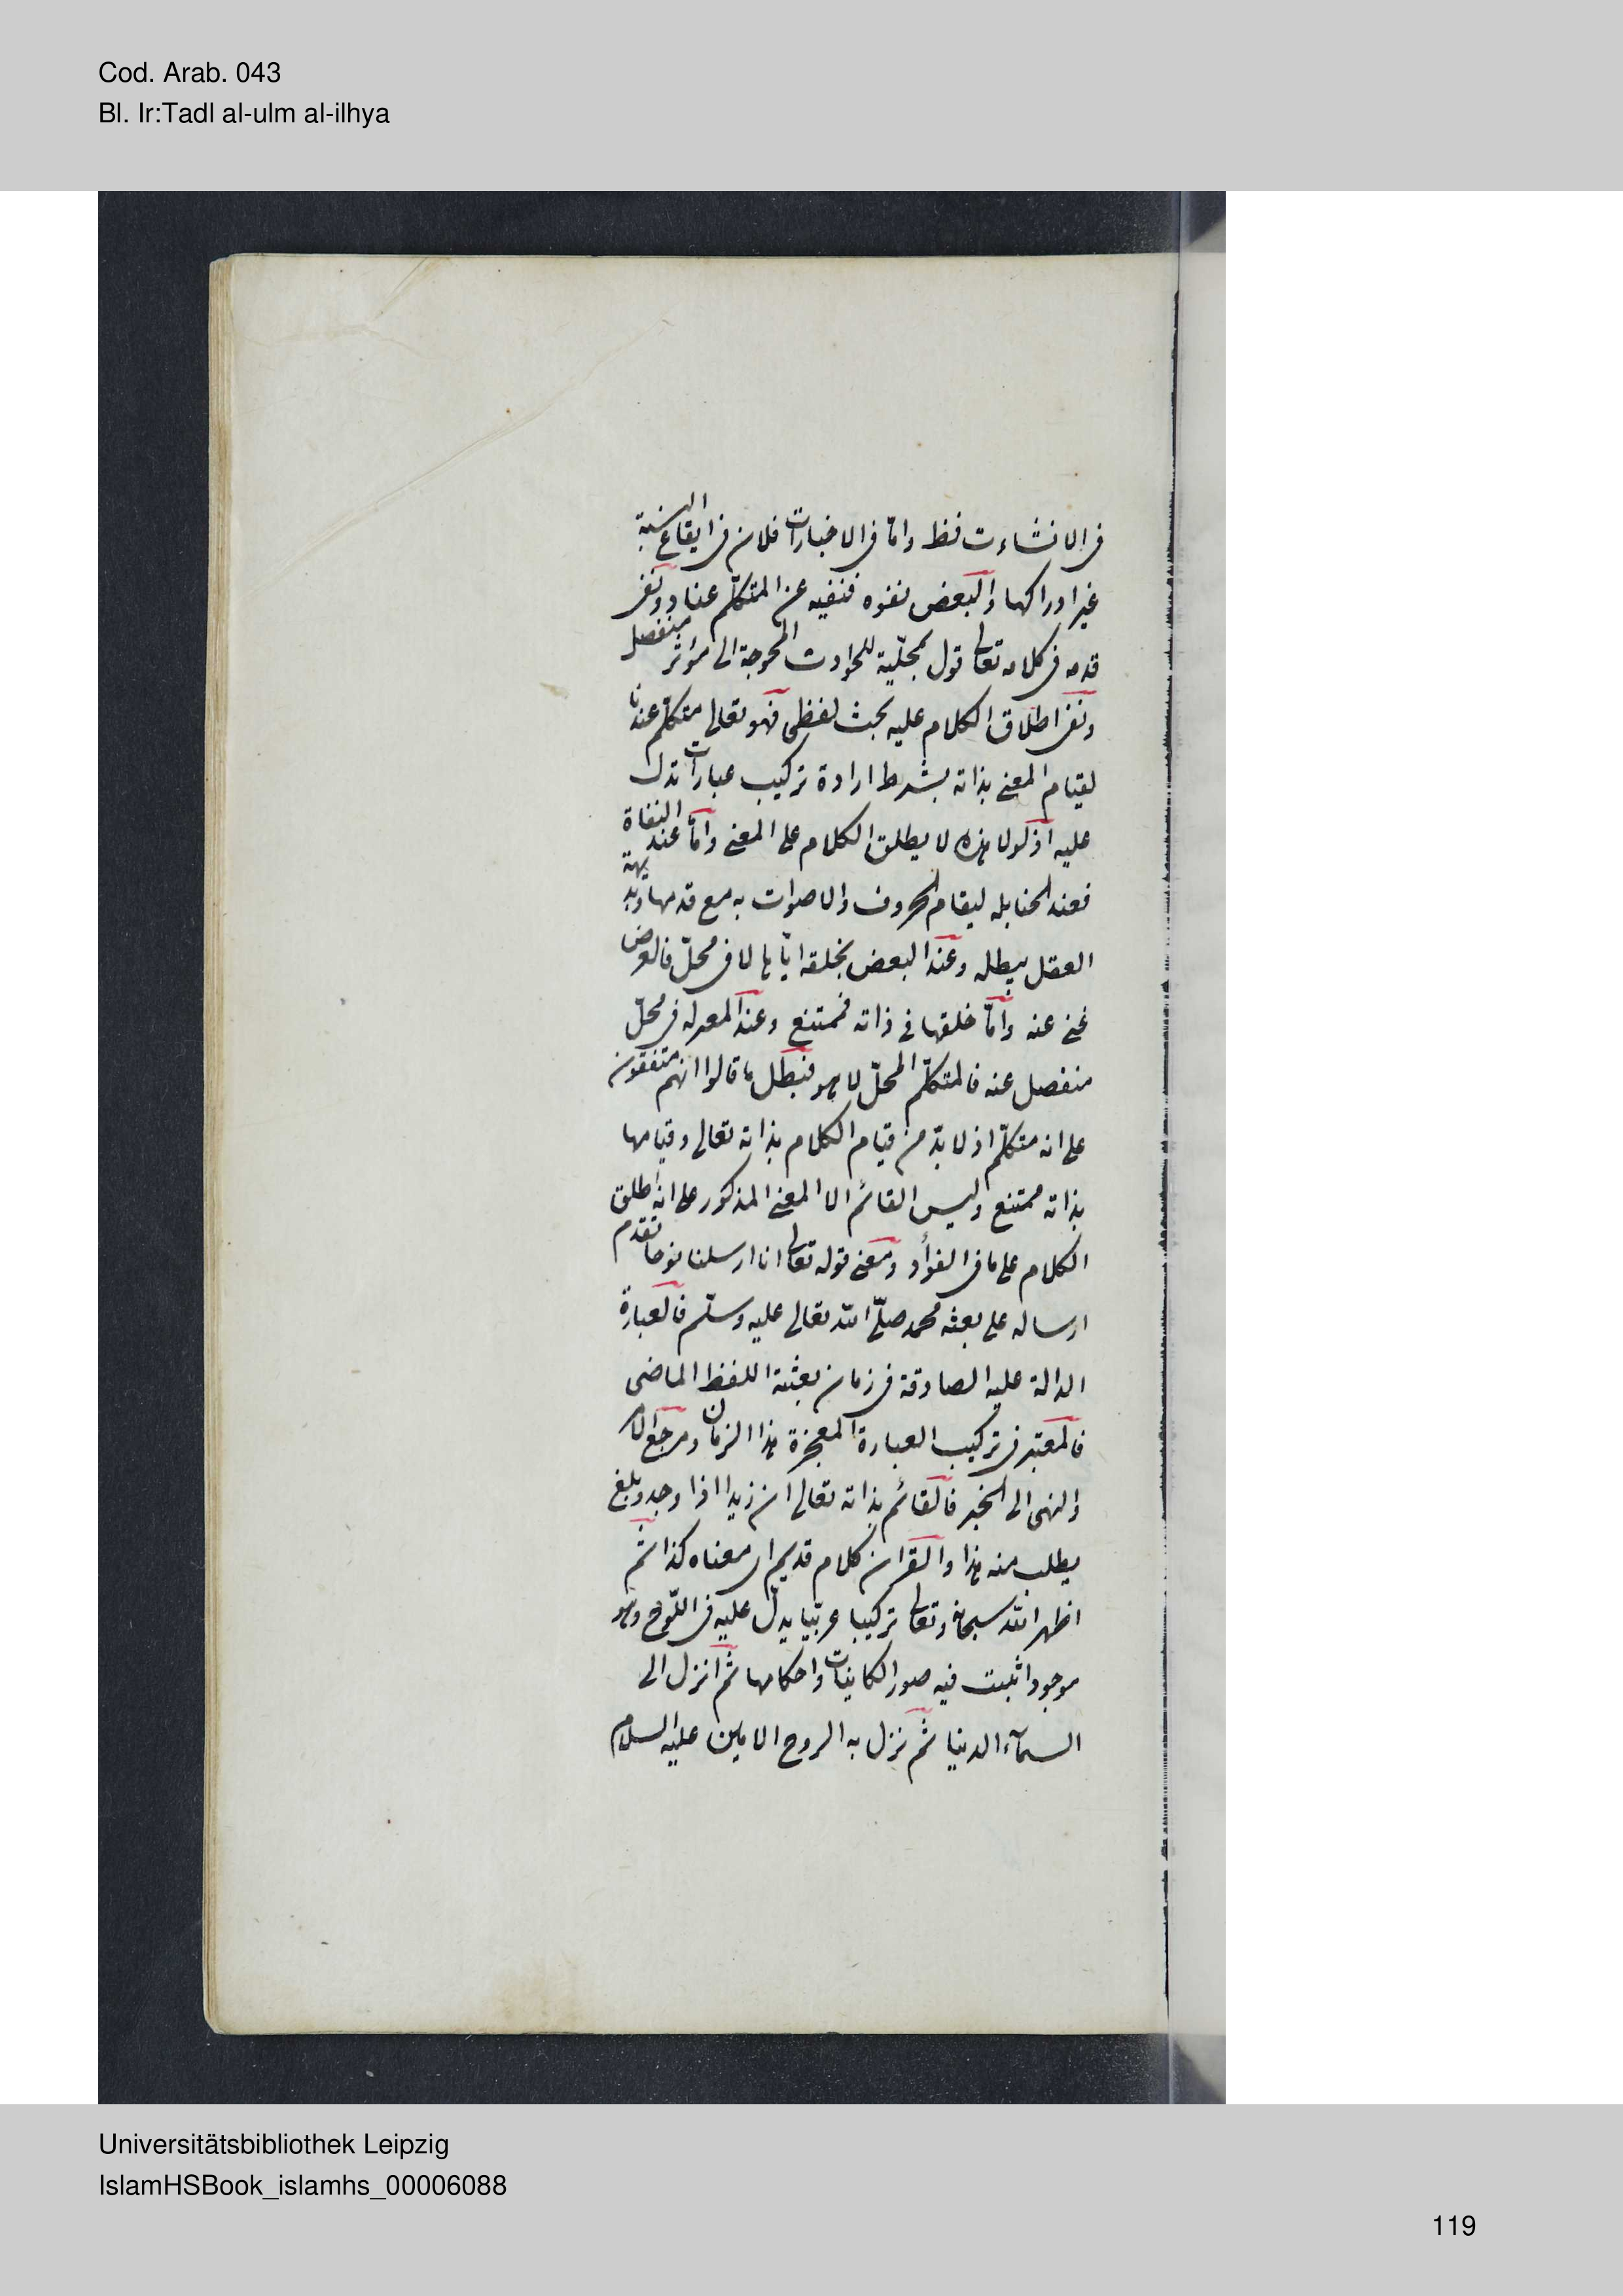 Cod. Arab. 043
Bl. Ir:Tadl al-ulm al-ilhya
فى الانشاءت فقط وامّا فى الاخبارات فلان فى ايقاع النسبة
غير ادراكها والبعض نفوه فنفيه عن المتكلّم عناد ونفى
قدمه فى كلامه تعالى قول بمحلّية للحوادث المحوجة الى مؤثر منفصل
ونفى اطلاق الكلام عليه بحث لفظى فهو تعالى متكلّم عندنا
لقيام المعنى بذاته بشرط ارادة تركيب عبارات تدل
عليه اذ لولا هذه لا يطلق الكلام على المعنى وامّا عند النفاة
فعند الحنابله ليقام الحروف والاصوات به مع قدمها وبديهة
العقل يبطله وعند البعض بخلقه ايّاها لا فى محلّ فالعرض
غنى عنه وامّا خلقها فى ذاته فممتنع وعند المعتزله فى محلّ
منفصل عنه فالمتكلّم المحلّ لا هو فبطل ما قالوا انهم متفقون
على انه متكلّم اذ لا بدّ من قيام الكلام بذاته تعالى وقيامها
بذاته ممتنع وليس القائم الا المعنى المذكور على انه اطلق
الكلام على ما فى الفؤاد ومعنى قوله تعالى انا ارسلنا نوحا تقدم
ارساله على بعثه محمد صلّى الله تعالى عليه وسلّم فالعبارة
الدالة عليه الصادقة فى زمان بعثته اللفظ الماضى
فالمعتبر فى تركيب العبارة المعجزة هذا الزمان ومرجع الامر
والنهى الى الخبر فالقائم بذاته تعالى ان زيدا اذا وجد وبلغ
يطلب منه هذا والقران كلام قديم اى معناه كذا ثمّ
اظهر الله سبحانه وتعالى تركيبا عربيّا يدلّ عليه فى اللّوح وهو
موجود اثبت فيه صور الكاينات واحكامها ثمّ انزل الى
السمآء الدنيا ثمّ نزل به الروح الامين عليه السلام
Universitätsbibliothek Leipzig
IslamHSBook_islamhs_00006088
119